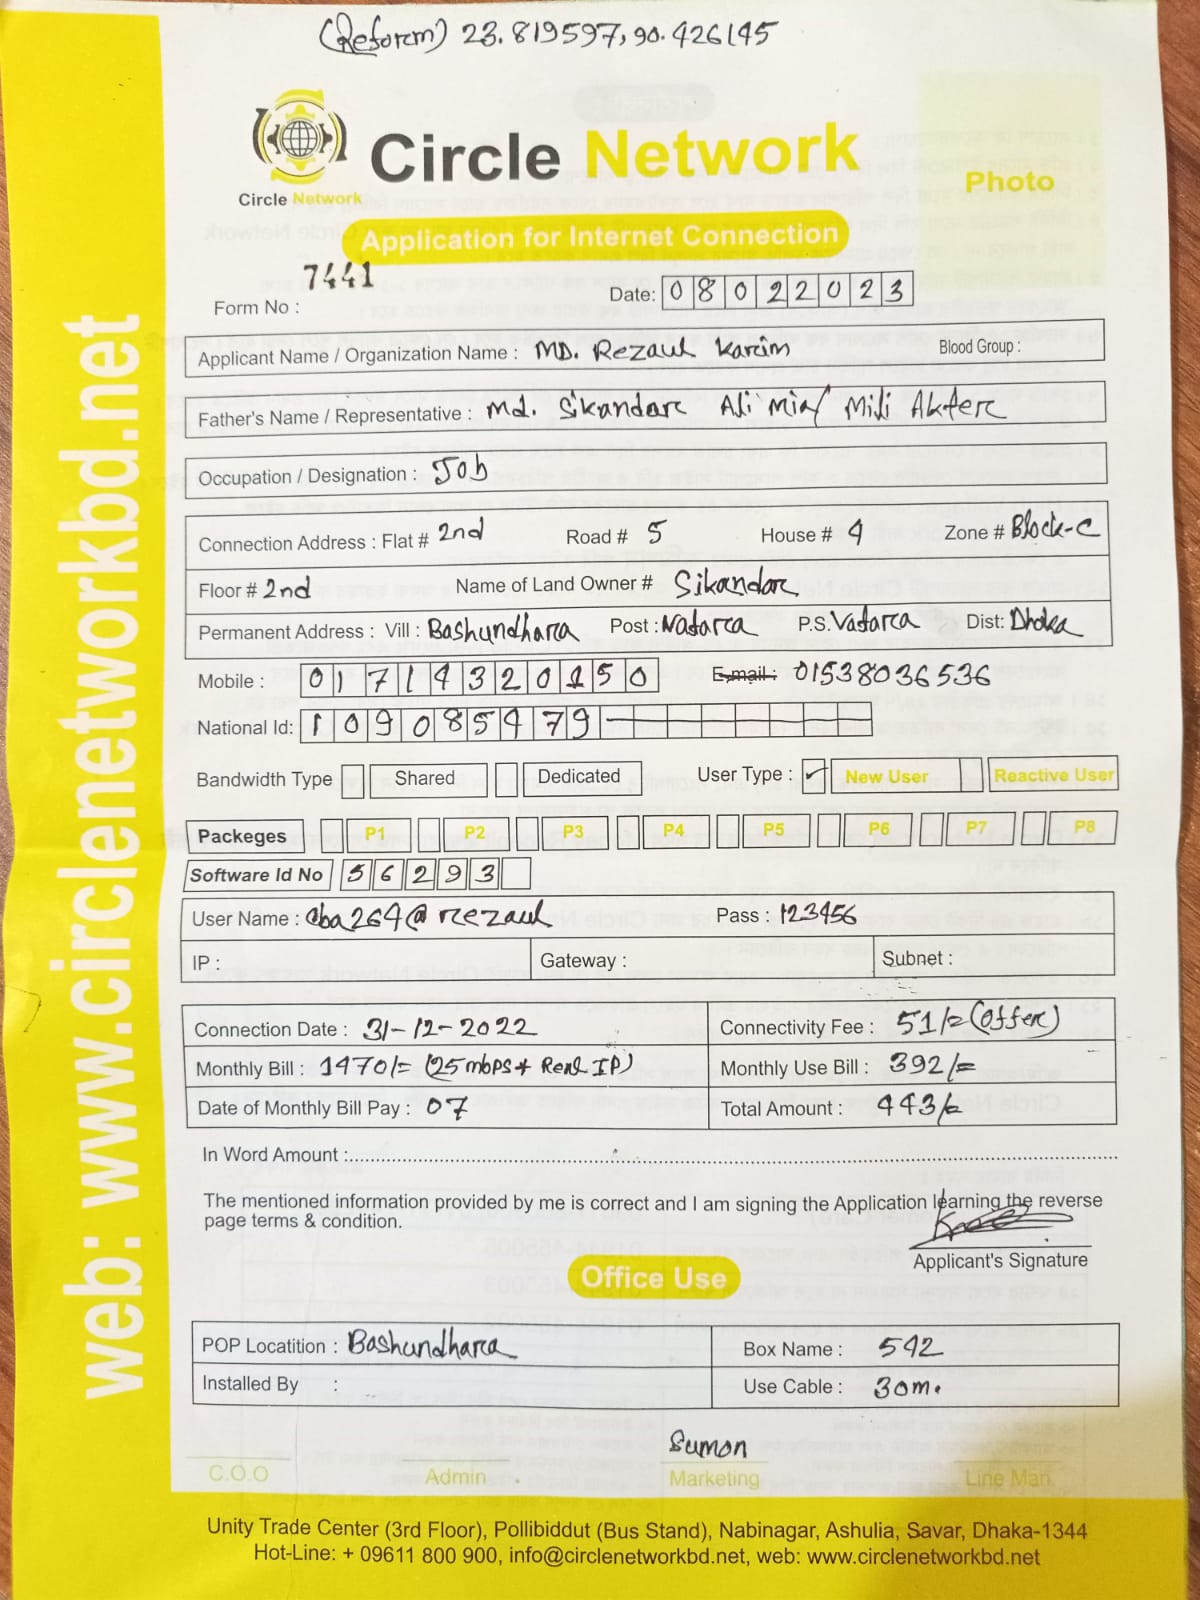 (Reform) 23.819597, 90.426145
Circle Network
Circle Network
Photo
Application for Internet Connection
7441
Form No :
Date: 08022023
Applicant Name / Organization Name : MD. Rezaul Karim Blood Group :
Father's Name / Representative : Md. Sikandar Ali Mia/ Mili Akter
Occupation / Designation : Job
Connection Address : Flat # 2nd Road # 5 House # 4 Zone # Block-C
Floor # 2nd Name of Land Owner # Sikandar
Permanent Address : Vill : Bashundhara Post : Vatara P.S. Vatara Dist: Dhaka
Mobile : 01714320150 E-mail : 01538036536
National Id: 109085479
Bandwidth Type Shared Dedicated User Type : ✓ New User Reactive User
Packeges P1 P2 P3 P4 P5 P6 P7 P8
Software Id No 56293
User Name : cba264@rezaul Pass : 123456
IP : Gateway : Subnet :
Connection Date : 31-12-2022 Connectivity Fee : 51/= (Offer)
Monthly Bill : 1470/= (25 mbps + Real IP) Monthly Use Bill : 392/=
Date of Monthly Bill Pay : 07 Total Amount : 443/=
In Word Amount :
The mentioned information provided by me is correct and I am signing the Application learning the reverse
page terms & condition.
Applicant's Signature
Office Use
POP Locatition : Bashundhara Box Name : 542
Installed By : Use Cable : 30m.
Sumon
C.O.O Admin Marketing Line Man.
Unity Trade Center (3rd Floor), Pollibiddut (Bus Stand), Nabinagar, Ashulia, Savar, Dhaka-1344
Hot-Line: + 09611 800 900, info@circlenetworkbd.net, web: www.circlenetworkbd.net
web: www.circlenetworkbd.net